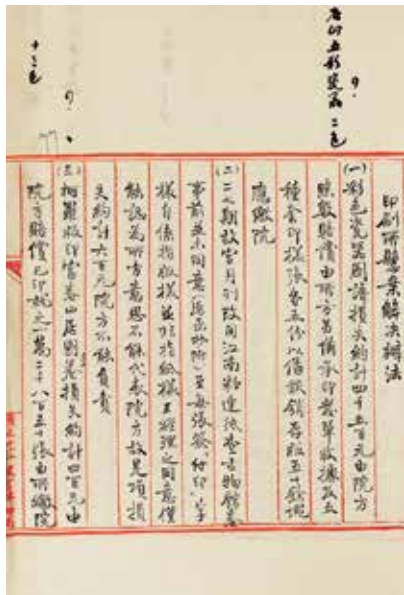 石印五彩瓷器二色
十三色
印刷所懸案解決辦法
(一)彩色瓷器圖譜損失約計四千五百元由院方
照數賠償由所方另備承印裝單收據及五
種套印樣張各五份以備放銷存版五十餘塊
應繳院
(二)二七期故宮月刊改用江南粉連紙查古物館
事前並不同意至每張簽付印二字
樣自係指版樣並非指紙樣王經理之同意僅
能認為所方意思不能代表院方故是項損
失約計六百元院方不能負責
(三)珂羅版印富春山居圖卷損失約計四百元由
院方賠償已印就之一萬二千八百五十張由所繳院